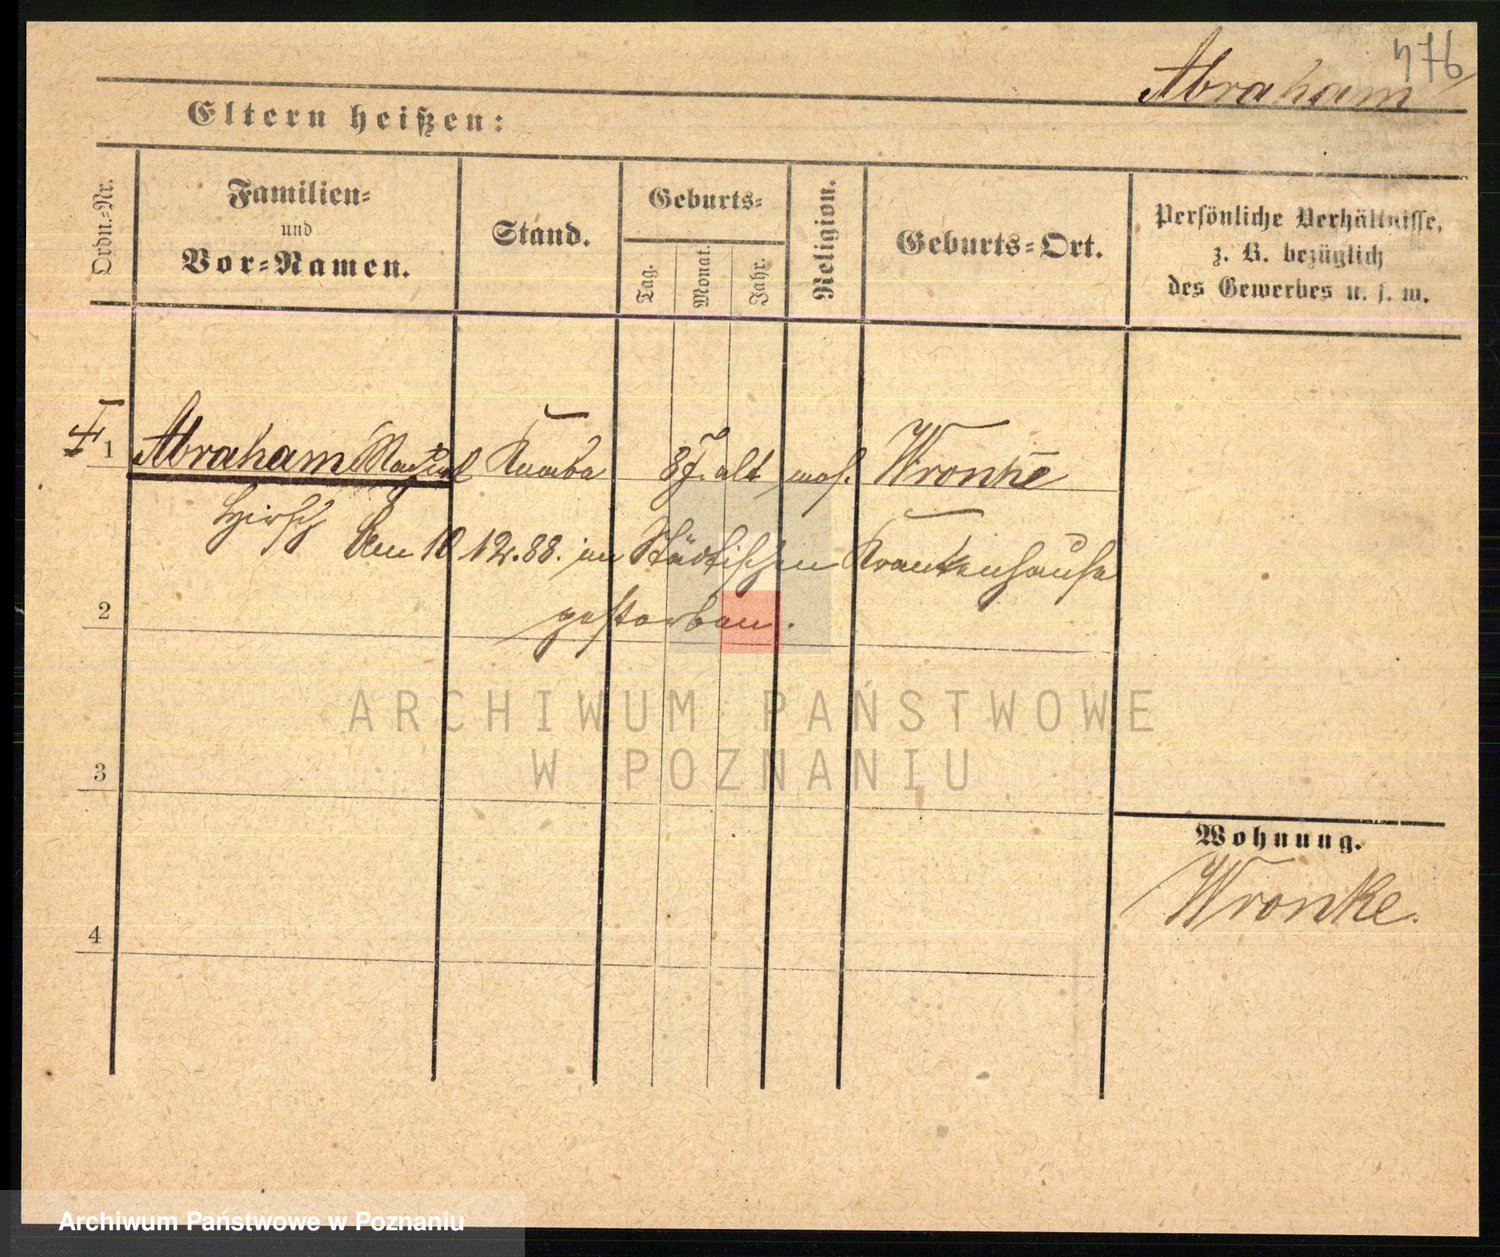 476
Abraham
Eltern heißen:
Ordn.-Nr.
Familien-
und
Vor-Namen.
Stand.
Geburts-
Tag.
Monat.
Jahr.
Religion.
Geburts-Ort.
Persönliche Verhältnisse,
z. B. bezüglich
des Gewerbes u. s. w.
1 Abraham Knabe 8 J. alt mos. Wronke
Hirsch den 10 12.88. im Städtischen Krankenhause
2 gestorben.
ARCHIWUM PAŃSTWOWE
W POZNANIU
3
Wohnung.
Wronke.
4
Archiwum Państwowe w Poznaniu